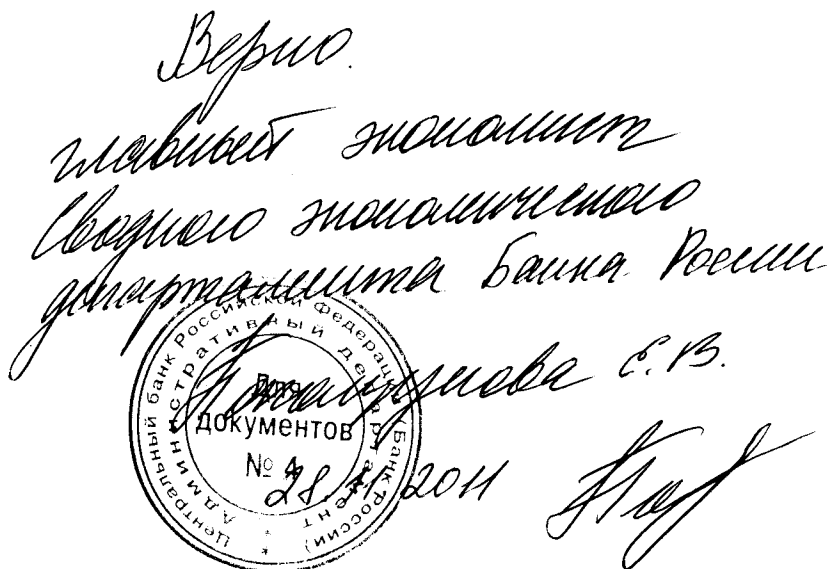 Верно.
главный экономист
Сводного экономического
департамента Банка России
Е.В.
Центральный банк Российской Федерации (Банк России)
Административный департамент
Для
документов
№ 4
28. 2011